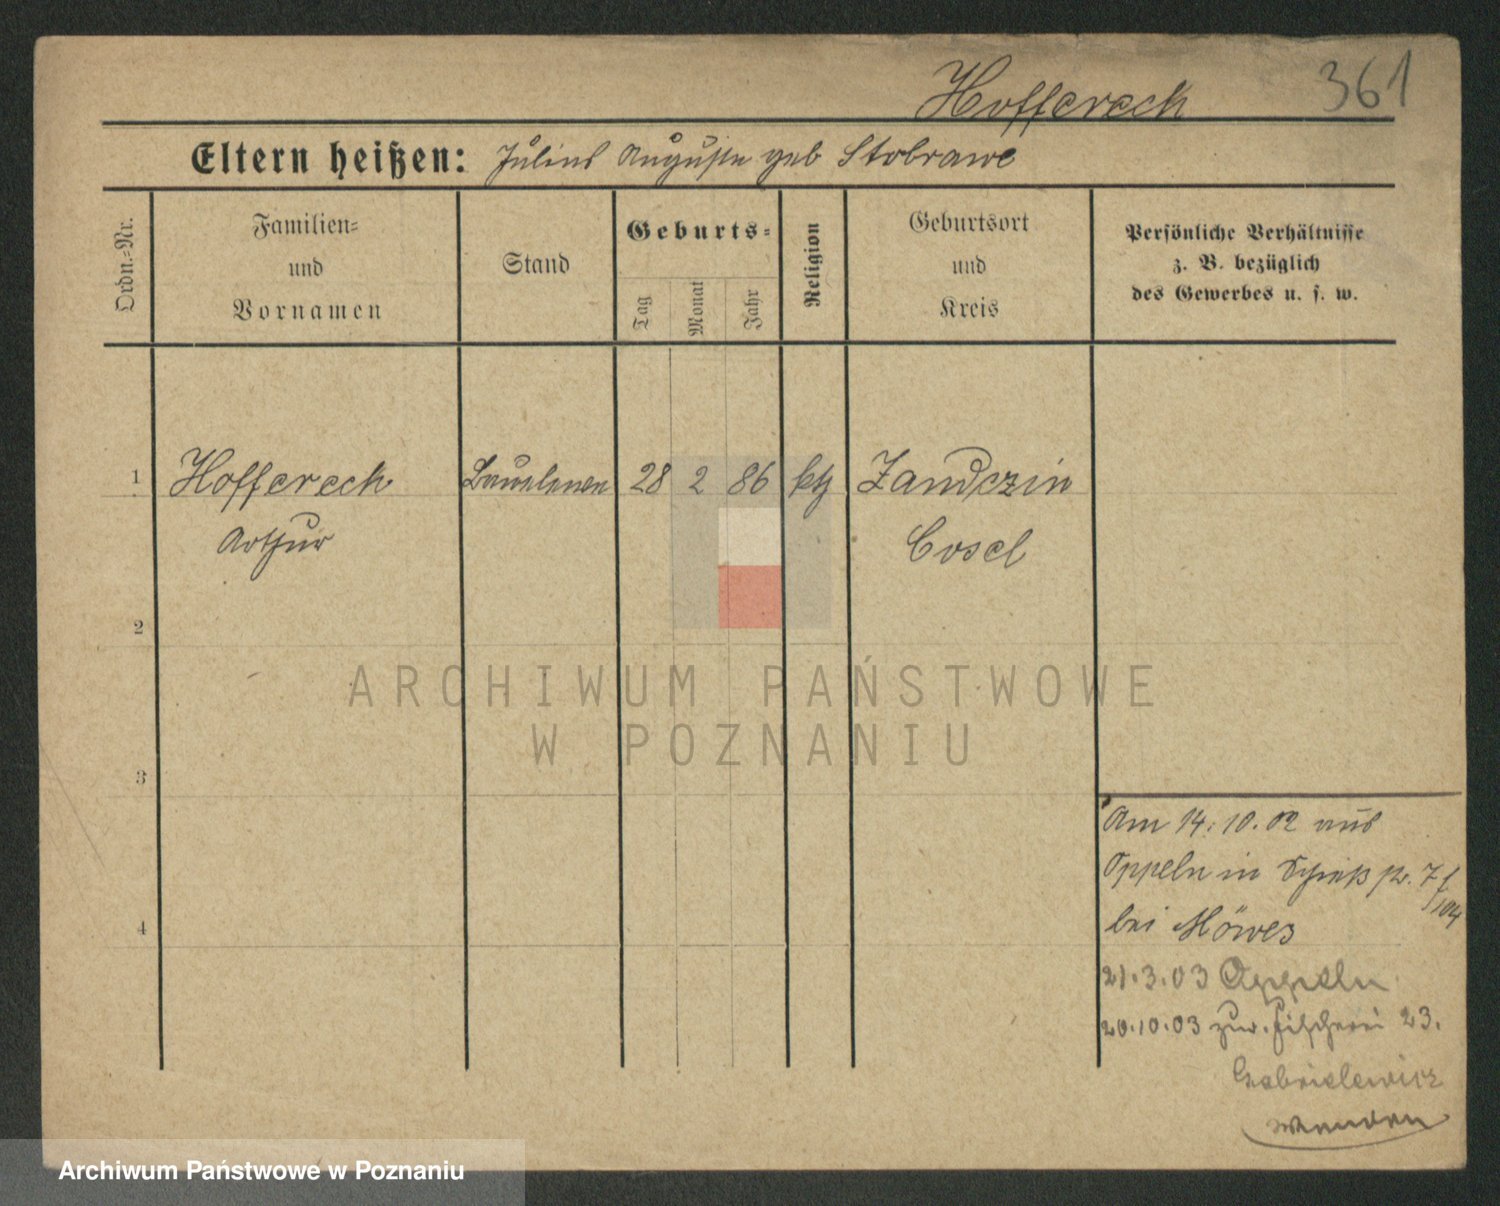 361
Hofferech
Eltern heißen: Julius Auguste geb Stobrawe
Ordn.-Nr.
Familien-
und
Vornamen
Stand
Geburts-
Tag
Monat
Jahr
Religion
Geburtsort
und
Kreis
Persönliche Verhältnisse
z. B. bezüglich
des Gewerbes u. s. w.
1 Hofferech 28 2 86 kth Zandczin
Arthur Cosel
2
ARCHIWUM PAŃSTWOWE
W POZNANIU
3
Am 14.10.02 aus
Oppeln in Schieß str. 7
bei Möwes
4
21.3.03 Oppeln
20.10.03 zur. Fischerei 23.
Gabrielewicz
wenden
Archiwum Państwowe w Poznaniu